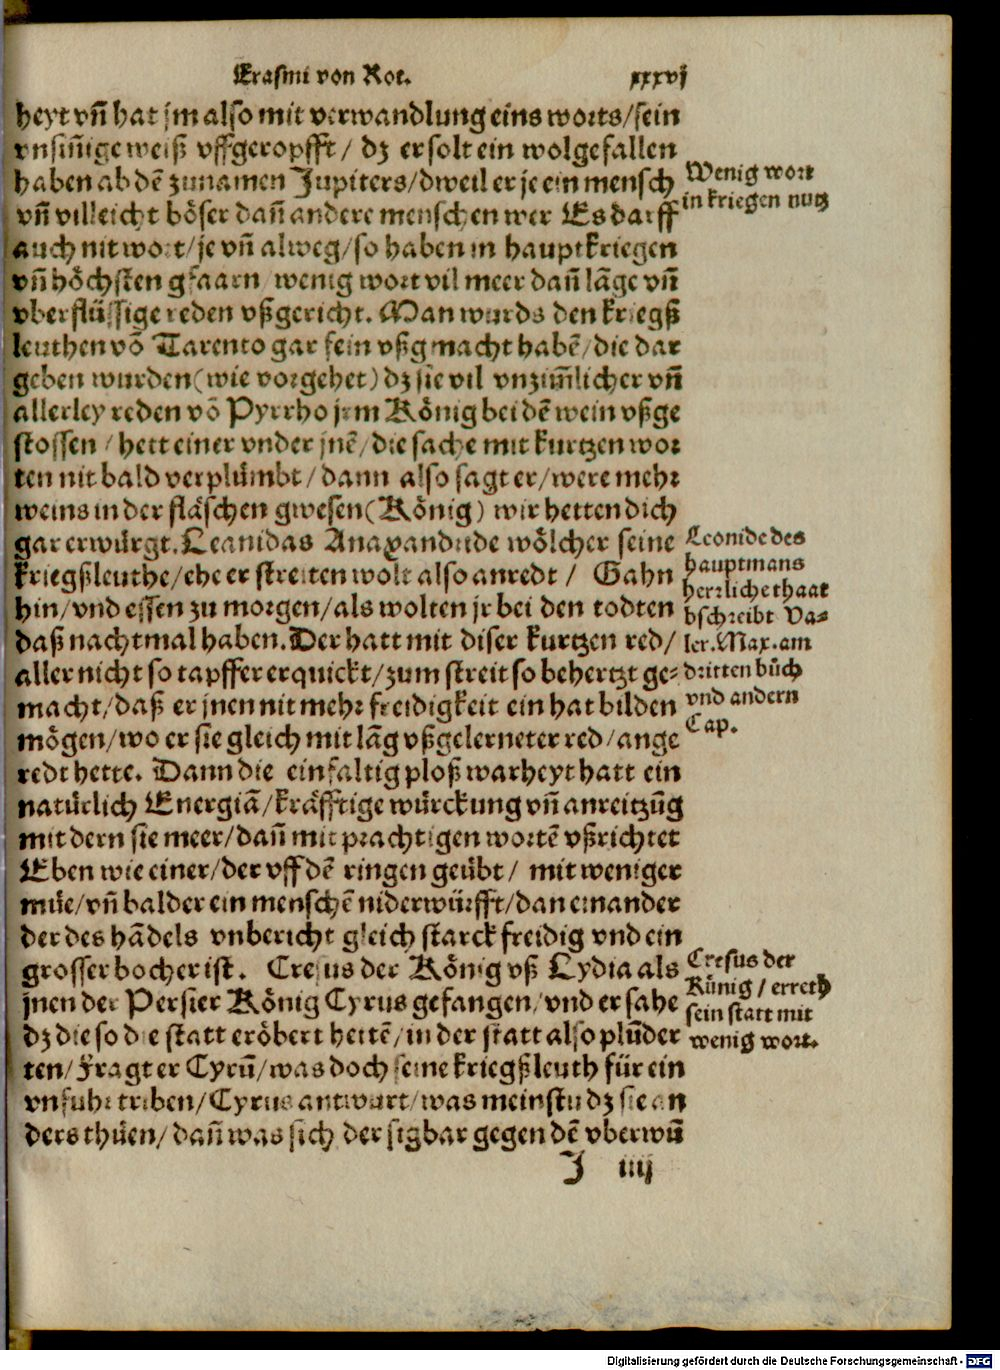 Erasmi von Rot. xxxvj
heyt vñ hat jm also mit verwandlung eins worts/sein
vnsiñige weiß vffgeropfft/ dz er solt ein wolgefallen
haben ab dẽ zunamen Jupiters/dweil er je ein mensch
vñ villeicht böser dañ andere menschen wer Es darff
auch nit wort/je vñ alweg/so haben in hauptkriegen
vñ höchsten gfaarn/wenig wort vil meer dañ lãge vñ
vberflüssige reden vßgericht. Man wurds den kriegß
leuthen võ Tarento gar fein vßgmacht habẽ/die dar
geben wurden(wie vorgehet)dz sie vil vnzim̃licher vñ
allerley reden võ Pyrrho jrm König bei dẽ wein vßge
stossen/hett einer vnder jnẽ/die sache mit kurtzen wor
ten nit bald verplümbt/dann also sagt er/were mehr
weins in der fläschen gwesen(König) wir hetten dich
gar erwürgt. Leanidas Anaxandride wölcher seine
kriegßleuthe/ehe er streiten wolt also anredt/ Gahn
hin/vnd essen zu morgen/als wolten jr bei den todten
daß nachtmal haben. Der hatt mit diser kurtzen red/
aller nicht so tapffer erquickt/zum streit so behertzt ge-
macht/daß er jnen nit mehr freidigkeit ein hat bilden
mögen/wo er sie gleich mit lãg vßgelerneter red/ange
redt hette. Dann die einfaltig ploß warheyt hatt ein
natürlich Energiã/kräfftige würckung vñ anreitzũg
mit dern sie meer/dañ mit prachtigen wortẽ vßrichtet
Eben wie einer/der vff dẽ ringen geübt/ mit weniger
müe/vñ balder ein menschẽ niderwürfft/dan einander
der des hãdels vnbericht gleich starck freidig vnd ein
grosser bocher ist. Cresus der König vß Lydia als
jnen der Persier König Cyrus gefangen/vnd er sahe
dz die so die statt eröbert hettẽ/in der statt also plũder
ten/Fragt er Cyrũ/was doch seine kriegßleuth für ein
vnfuhr triben/Cyrus antwurt/was meinstu dz sie an
ders thüen/dañ was sich der sigbar gegen dẽ vberwũ
J iiij
Wenig wort
in kriegen nutz
Leonide des
hauptmans
herrliche thaat
bschreibt Va-
ler. Max. am
dritten bůch
vnd andern
Cap.
Cresus der
Künig/erreth
sein statt mit
wenig wort.
Digitalisierung gefördert durch die Deutsche Forschungsgemeinschaft - DFG